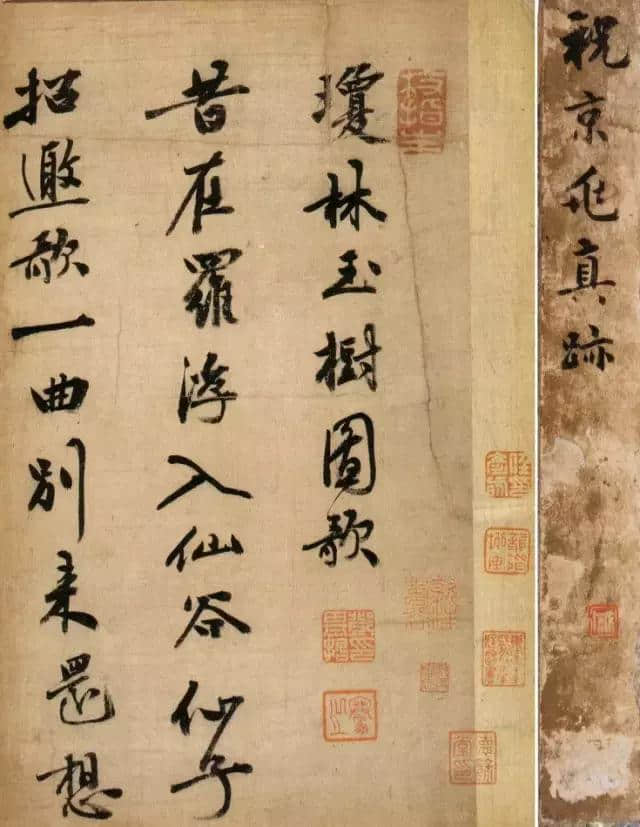 祝京兆真跡
枝指生
瓊林玉樹圖歌
昔在羅浮入仙谷仙子
招邀歌一曲別來還想